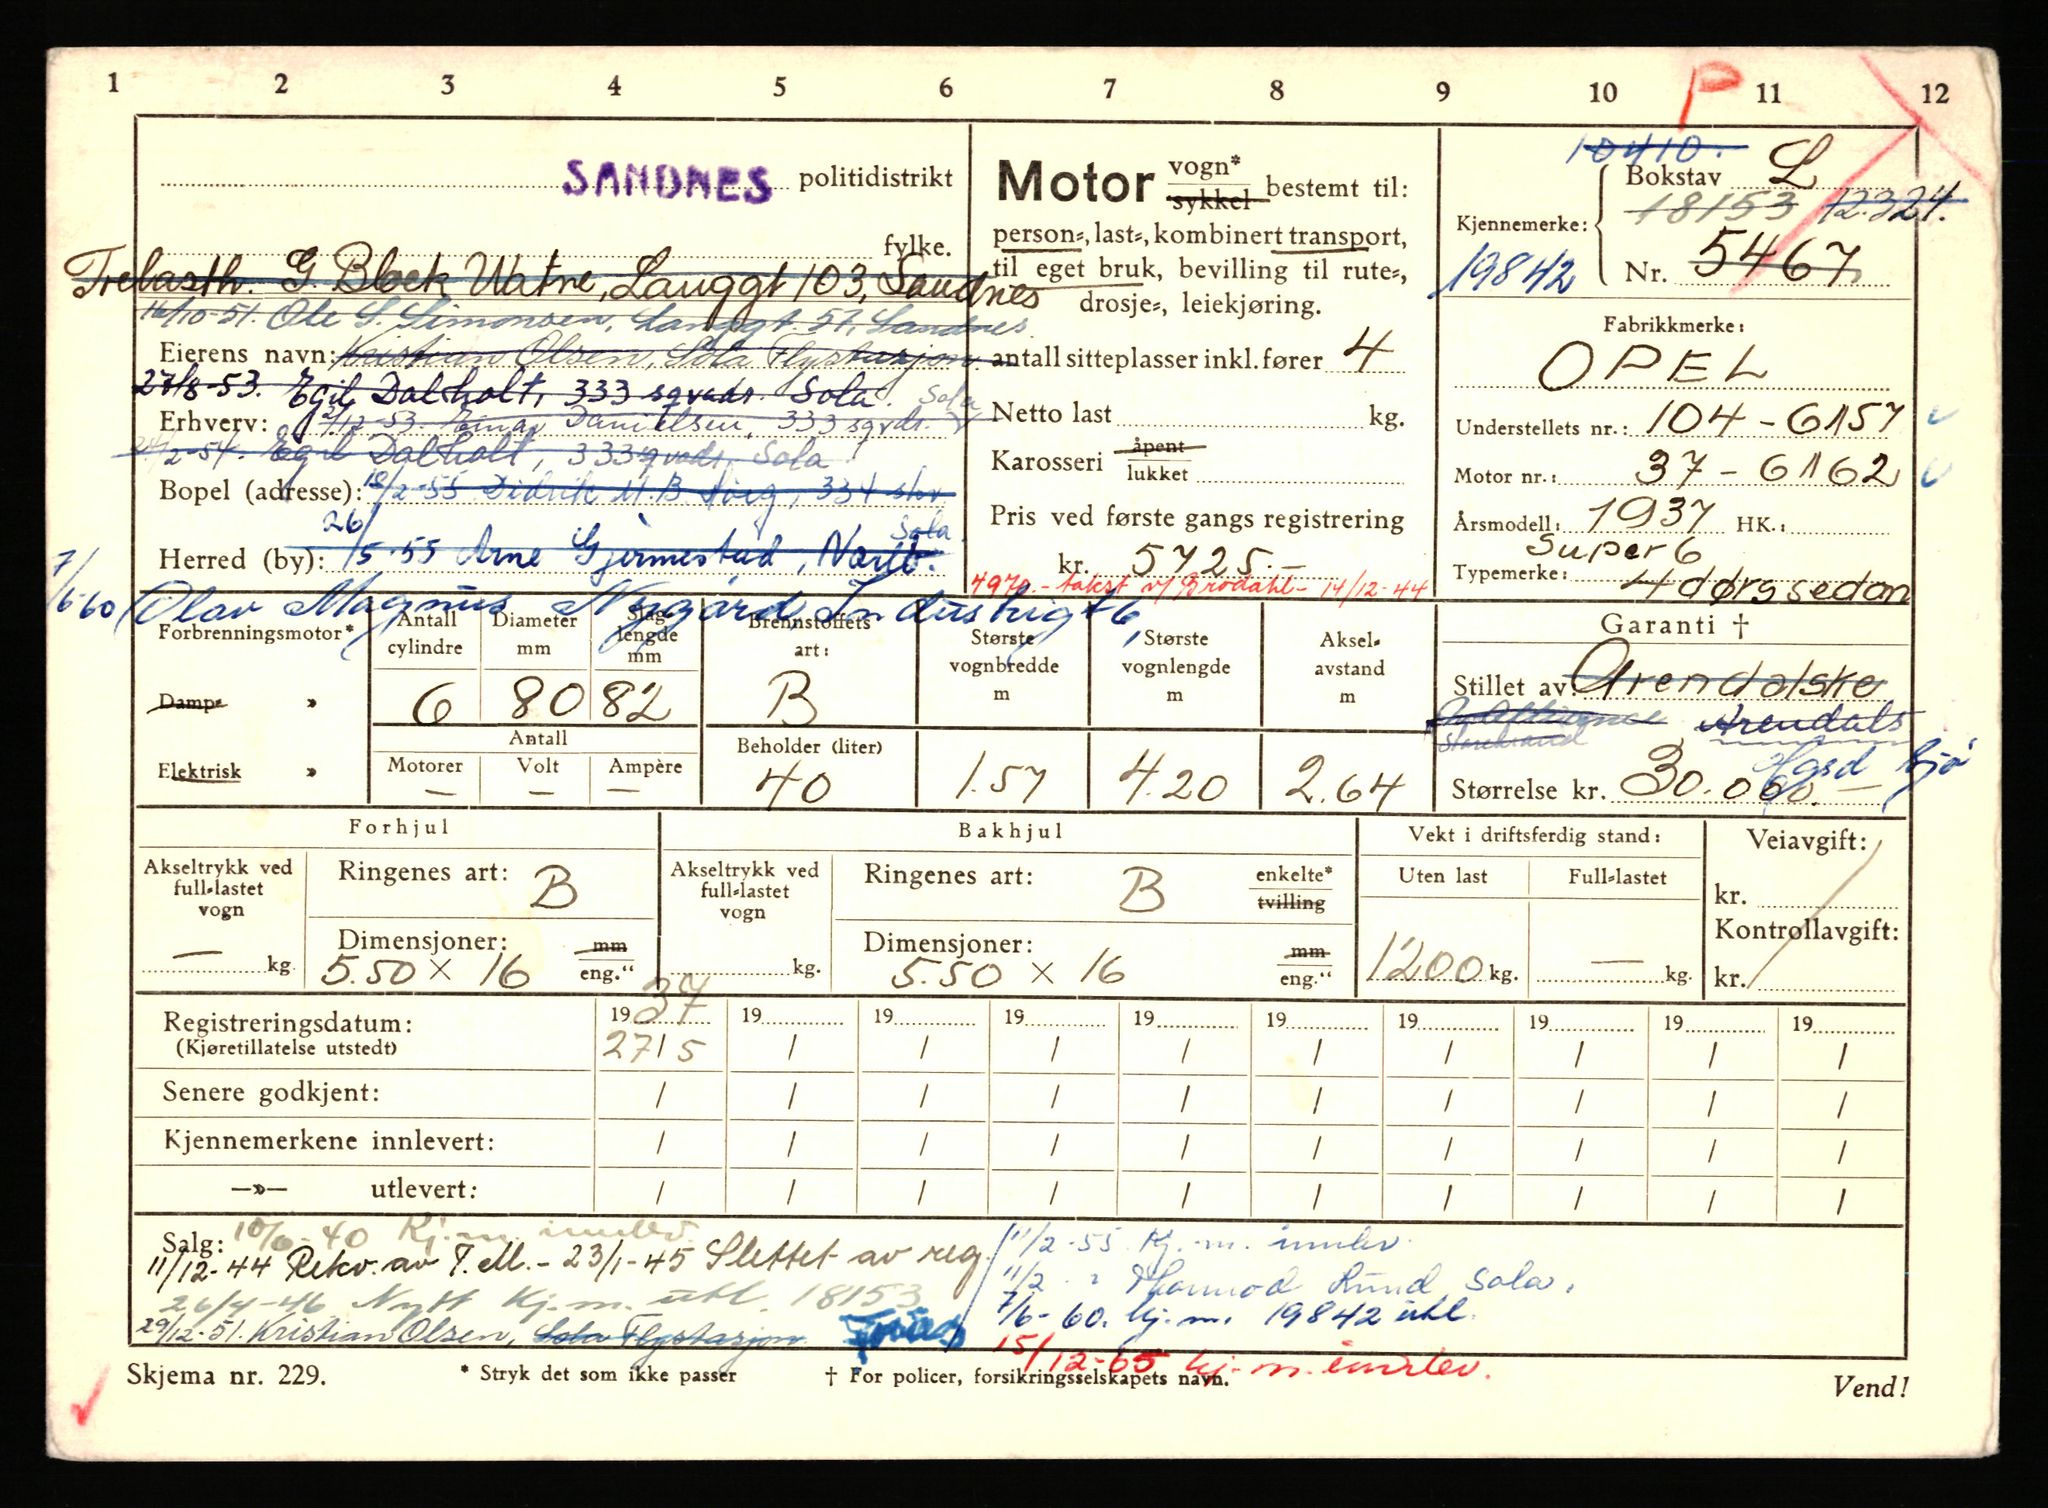 1 2 3 4 5 6 7 8 9 10 P 11 12
SANDNES politidistrikt
fylke.
Trelasth. G. Block Watne, Langgt 103, Sandnes
16/10-51. Ole S. Simonsen, Langgt. 57, Sandnes
Eierens navn: Kristian Olsen, Sola Flystasjon
27/8-53. Egil Dalholt, 333 sqvadr. Sola.
Erhverv: 2/12-53. Einar Danielsen, 333 sqvdr. Sola
24/2-54. Egil Dalholt, 333 sqvadr. Sola
Bopel (adresse): 10/2-55 Didrik M.B. 334 skv Sola
Herred (by): 26/5-55 Arne Gjermestad, Nærbø.
7/6-60 Olav Magnus Nygård, Industrigt 6,
Motor vogn* sykkel bestemt til:
person-, last-, kombinert transport,
til eget bruk, bevilling til rute-,
drosje-, leiekjøring.
antall sitteplasser inkl. fører 4
Netto last kg.
Karosseri åpent lukket
Pris ved første gangs registrering
kr. 5725.-
4970.- takst v/ Brodahl - 14/12-44
10410.
Bokstav L
18153 12324.
Kjennemerke:
19842 Nr. 5467
Fabrikkmerke:
OPEL
Understellets nr.: 104-6157
Motor nr.: 37-6162
Årsmodell: 1937 HK.:
Super 6
Typemerke: 4 dørs sedan
Forbrenningsmotor*
Antall cylindre 6
Diameter mm 80
Slaglengde mm 82
Brennstoffets art: B
Største vognbredde m 1.57
Største vognlengde m 4.20
Akselavstand m 2.64
Damp- »
Elektrisk »
Antall
Motorer — Volt — Ampère —
Beholder (liter) 40
Garanti †
Stillet av: Arendalske
Arendals
Storebrand
Størrelse kr. 30.000.—
Forhjul
Akseltrykk ved full-lastet vogn — kg.
Ringenes art: B
Dimensjoner: 5.50 × 16 mm eng."
Bakhjul
Akseltrykk ved full-lastet vogn kg.
Ringenes art: B enkelte* tvilling
Dimensjoner: 5.50 × 16 mm eng."
Vekt i driftsferdig stand:
Uten last 1200 kg.
Full-lastet — kg.
Veiavgift:
kr.
Kontrollavgift:
kr.
Registreringsdatum: 1937 19 19 19 19 19 19 19 19 19
(Kjøretillatelse utstedt) 27/5 / / / / / / / / /
Senere godkjent: / / / / / / / / / /
Kjennemerkene innlevert: / / / / / / / / / /
—»— utlevert: / / / / / / / / / /
Salg: 10/6-40 Kj.m. innlev.
11/12-44 Rekv. av T.M. - 23/1-45 Slettet av reg.
26/4-46 Nytt kj.m. utl. 18153
29/12-51. Kristian Olsen, Sola Flystasjon
11/2-55 Kj.-m. innlev.
11/2 Sola.
7/6-60. kj.m. 19842 utl.
15/12-65 kj.-m. innlev.
Skjema nr. 229. * Stryk det som ikke passer † For policer, forsikringsselskapets navn. Vend!